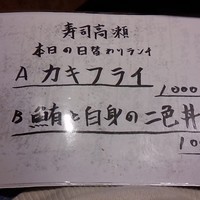 寿司高瀬
本日の日替わりランチ
A カキフライ
1000
B 鮪と白身の二色丼
100